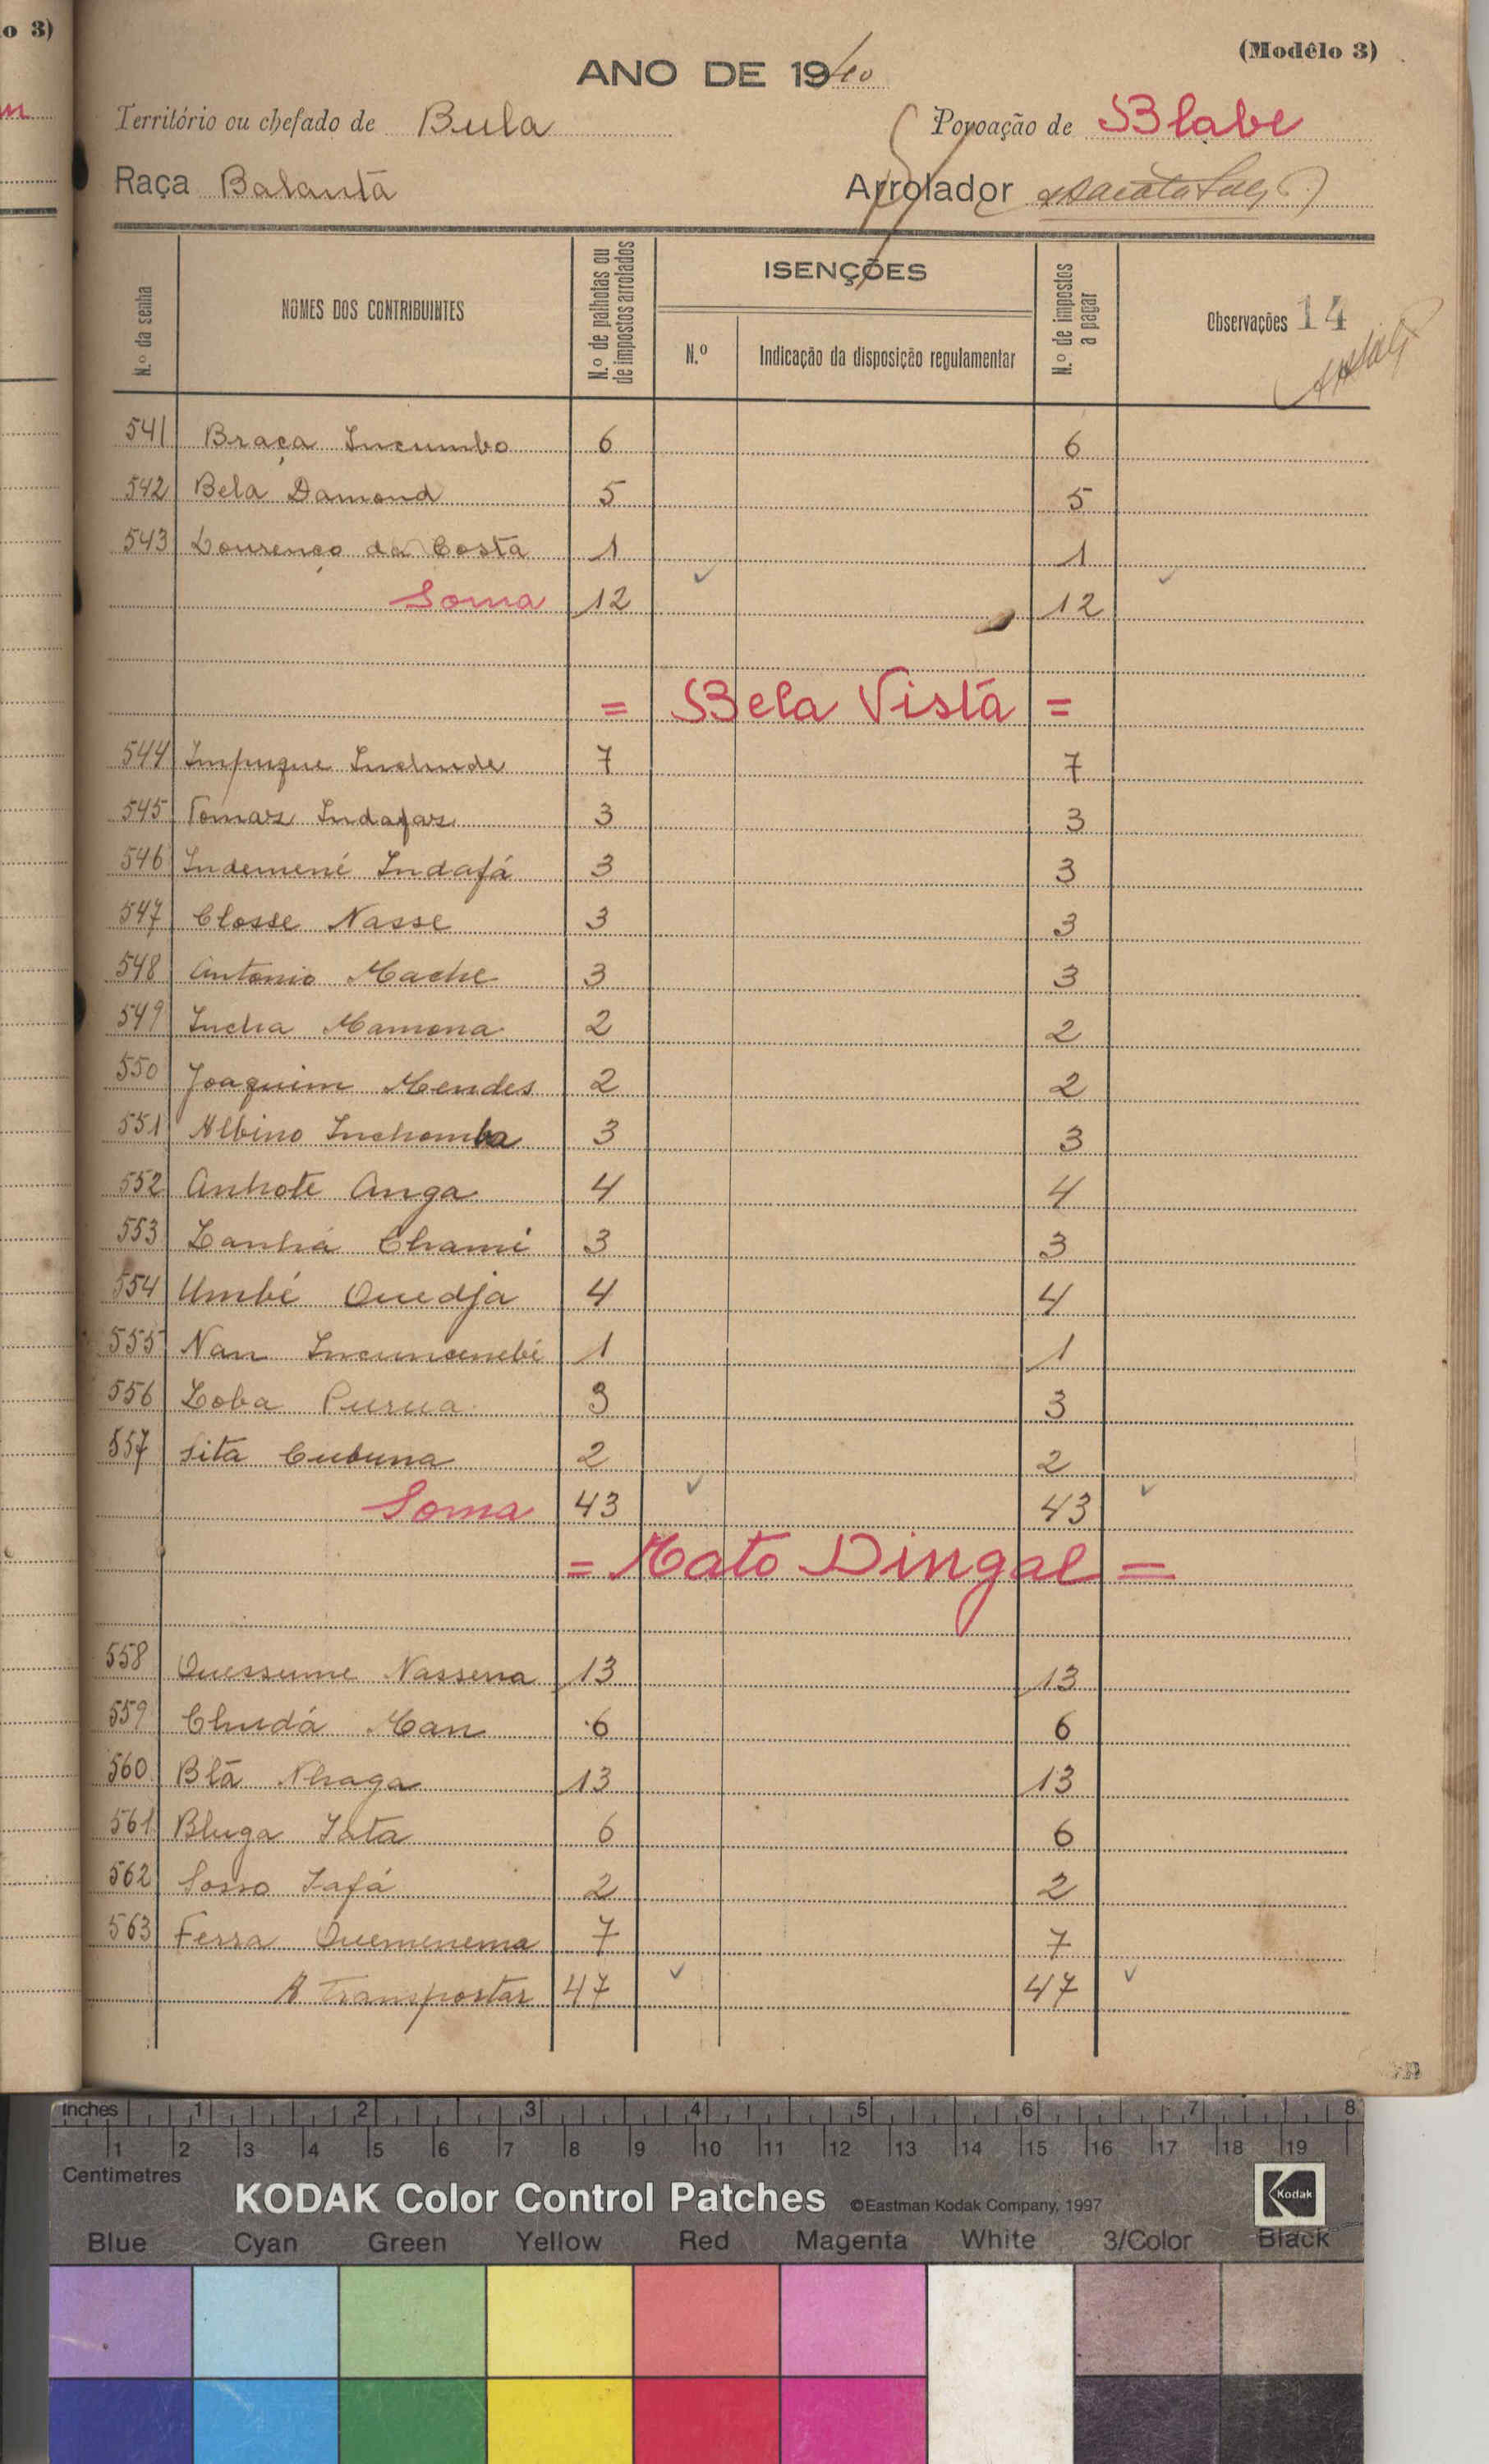 o 3)
(Modêlo 3)
ANO DE 1940
Território ou chefado de Bula
Povoação de Blabe
Raça Balanta
Arrolador
N.º da senha
NOMES DOS CONTRIBUINTES
N.º de palhotas ou de impostos arrolados
ISENÇÕES
N.º
Indicação da disposição regulamentar
N.º de impostos a pagar
Observações 14
541 Braça Incumbo 6 6
542 Bela Damond 5 5
543 Lourenço da Costa 1 1
Soma 12 12
= Bela Vista =
544 Impuque Inclunde 7 7
545 Tomas Indafas 3 3
546 Indemené Indafá 3 3
547 Closse Nasse 3 3
548 Antonio Mache 3 3
549 Incha Mamona 2 2
550 Joaquim Mendes 2 2
551 Albino Inchomba 3 3
552 Anhote Anga 4 4
553 Lanhá Chami 3 3
554 Umbé Quedja 4 4
555 Nan 1 1
556 Loba Purua 3 3
557 Sita Cubuna 2 2
Soma 43 43
= Mato Dingal =
558 Quessume Nassena 13 13
559 Chudá Man 6 6
560 Blá Nhaga 13 13
561 Bluga Iata 6 6
562 Sosso Iafá 2 2
563 Ferra Quemenema 7 7
A transportar 47 47
Inches 1 2 3 4 5 6 7 8
1 2 3 4 5 6 7 8 9 10 11 12 13 14 15 16 17 18 19
Centimetres
KODAK Color Control Patches ©Eastman Kodak Company, 1997 Kodak
Blue Cyan Green Yellow Red Magenta White 3/Color Black